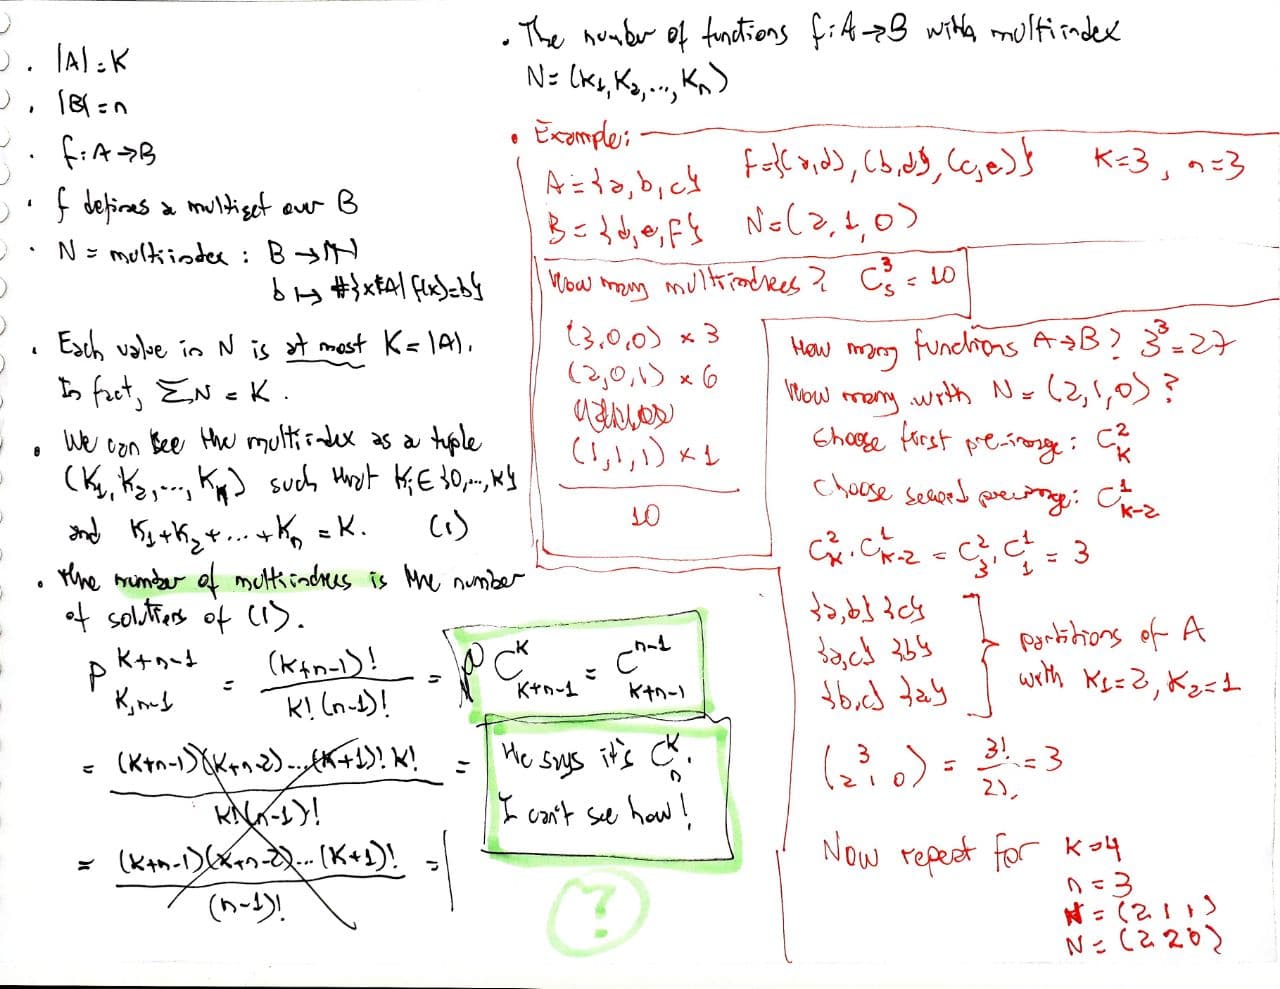 . |A| = K
. |B| = n
. f: A → B
. f defines a multiset over B
. N = multiindex : B → ℕ
b ↦ #{x∈A | f(x)=b}
. Each value in N is at most K = |A|.
In fact, ΣN = K.
. We can see the multiindex as a tuple
(K₁, K₂, ..., Kₙ) such that Kᵢ ∈ {0, ..., K}
and K₁+K₂+...+Kₙ = K. (1)
. The number of multiindices is the number
of solutions of (1).
P^{K+n-1}_{K,n-1} = (K+n-1)! / K!(n-1)! = C^{K}_{K+n-1} = C^{n-1}_{K+n-1}
= (K+n-1)(K+n-2)...(K+1)! K! / K!(n-1)! =
= (K+n-1)(K+n-2)...(K+1)! / (n-1)! =
He says it's C^{K}_{n}.
I can't see how!
?
. The number of functions f: A → B with multiindex
N = (K₁, K₂, ..., Kₙ)
. Example:
A = {a, b, c} f = {(a,d), (b,d), (c,e)} K=3, n=3
B = {d, e, f} N = (2, 1, 0)
How many multiindices? C^{3}_{5} = 10
(3,0,0) × 3
(2,0,1) × 6
(1,1,1) × 1
10
How many functions A → B? 3³ = 27
How many with N = (2,1,0)?
Choose first pre-image: C^{2}_{K}
Choose second preimage: C^{1}_{K-2}
C^{2}_{K} . C^{1}_{K-2} = C^{2}_{3} . C^{1}_{1} = 3
{a,b} {c}
{a,c} {b}
{b,c} {a}
partitions of A
with K₁=2, K₂=1
(3 / 2 1 0) = 3! / 2! = 3
Now repeat for K=4
n = 3
N = (2 1 1)
N = (2 2 0)